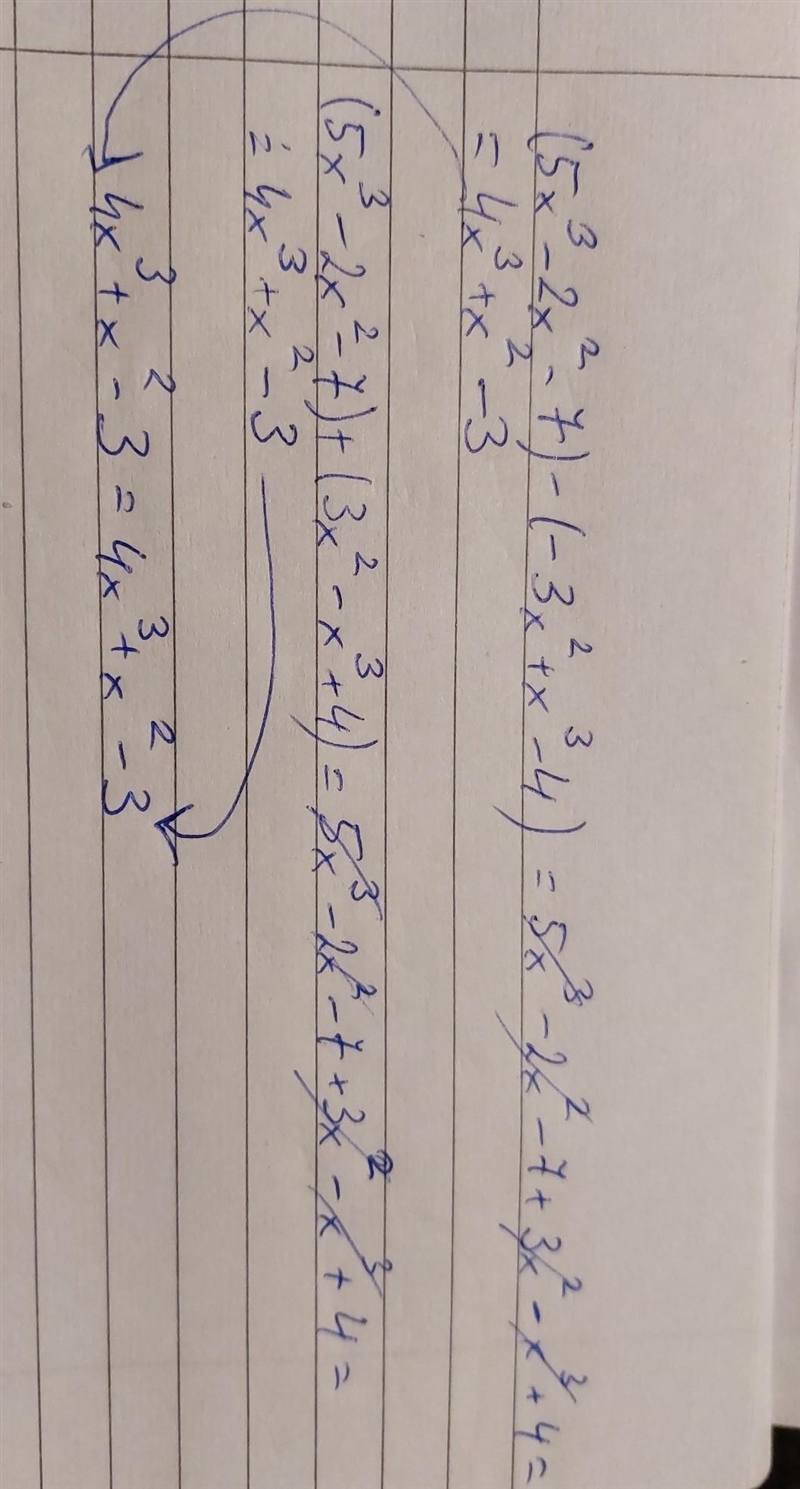 (5x³ - 2x² - 7) - (-3x² + x³ - 4) = 5x³ - 2x² - 7 + 3x² - x³ + 4 =
= 4x³ + x² - 3
(5x³ - 2x² - 7) + (3x² - x³ + 4) = 5x³ - 2x² - 7 + 3x² - x³ + 4 =
= 4x³ + x² - 3
4x³ + x² - 3 = 4x³ + x² - 3